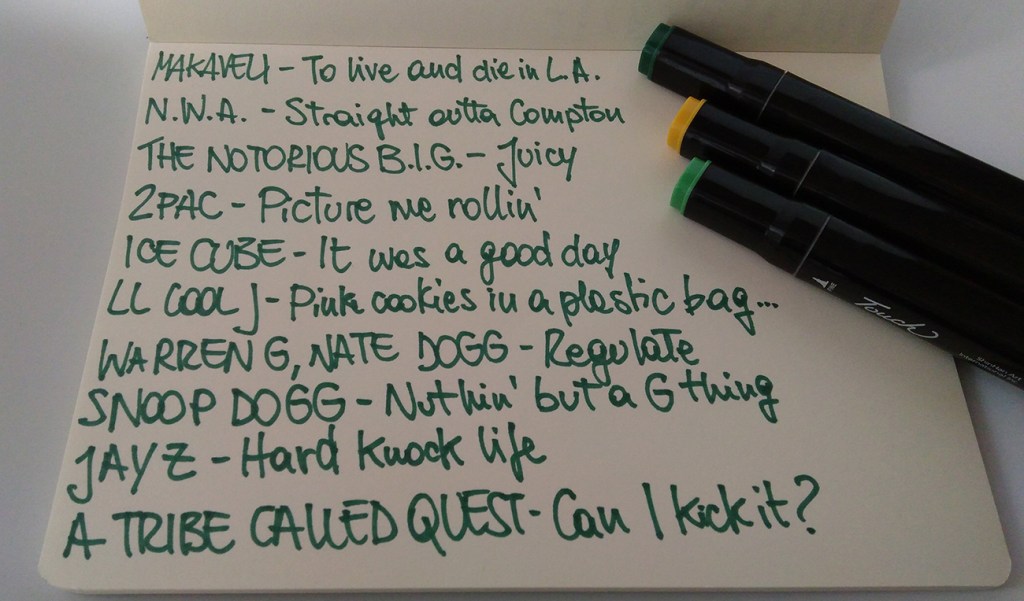 MAKAVELI - To live and die in L.A.
N.W.A. - Straight outta Compton
THE NOTORIOUS B.I.G. - Juicy
2PAC - Picture me rollin'
ICE CUBE - It was a good day
LL COOL J - Pink cookies in a plastic bag...
WARREN G, NATE DOGG - Regulate
SNOOP DOGG - Nuthin' but a G thing
JAY Z - Hard knock life
A TRIBE CALLED QUEST - Can I kick it?
Touch